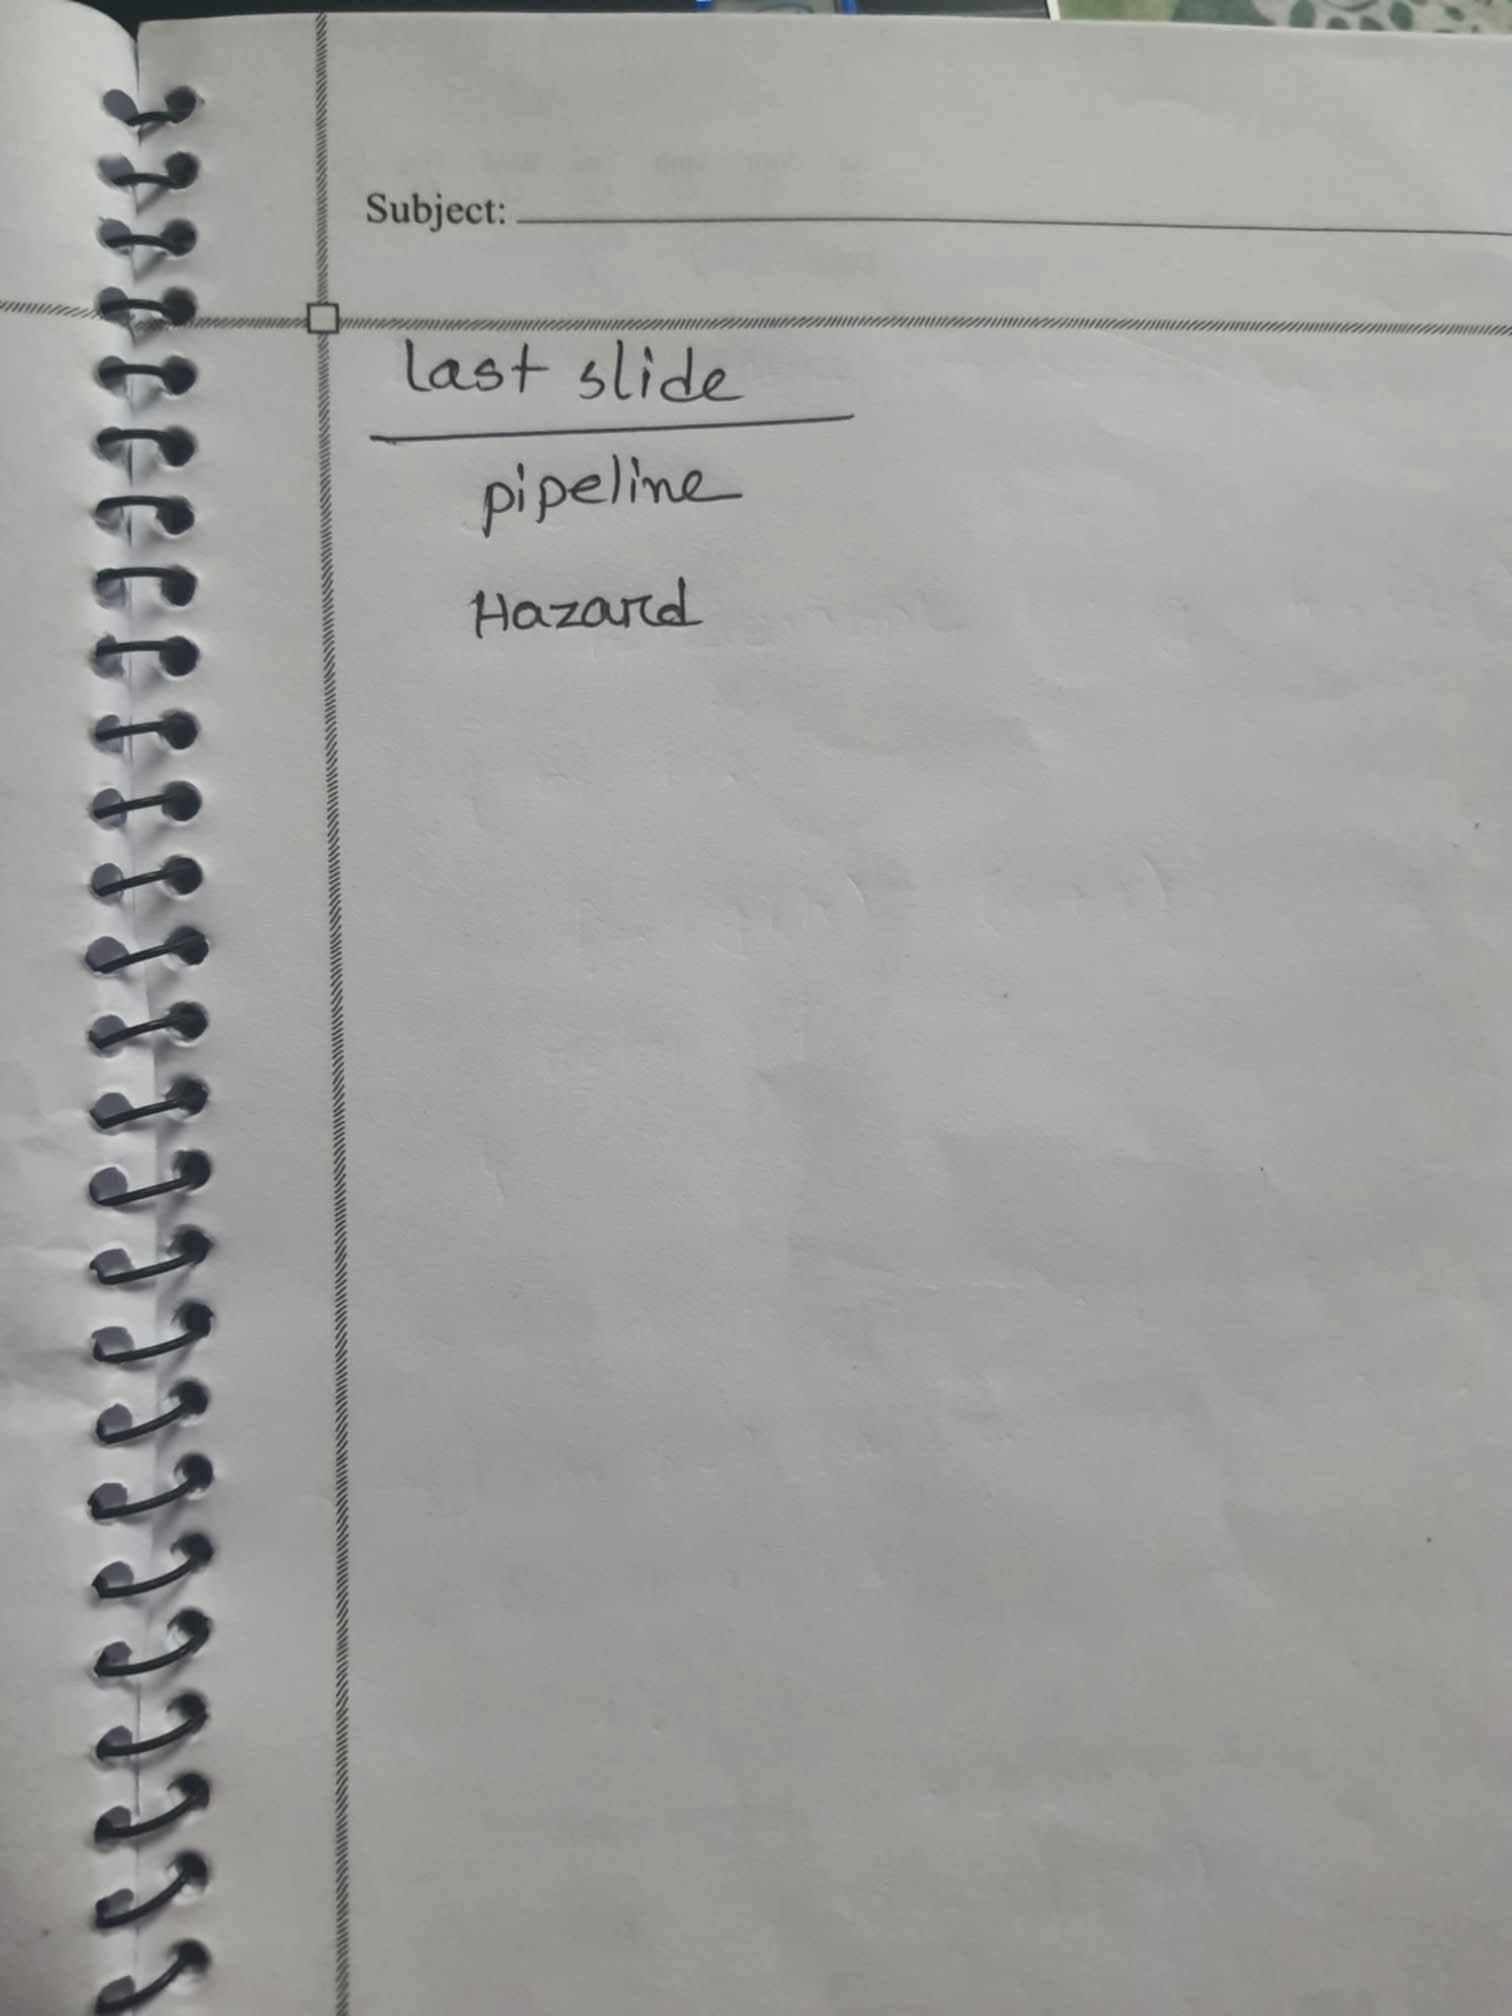 Subject:
last slide
pipeline
Hazard